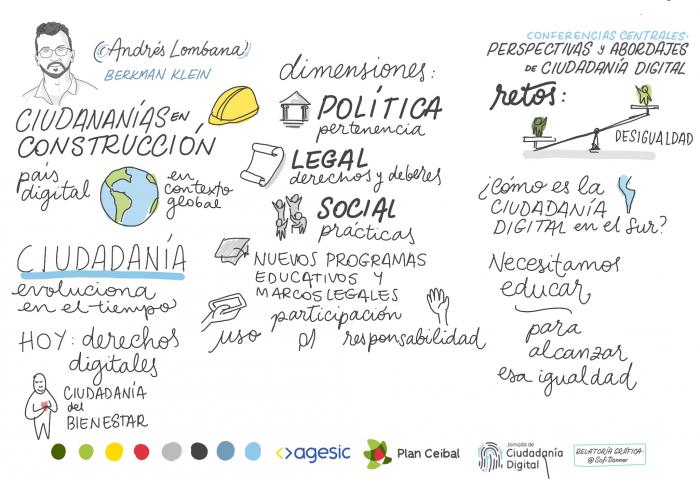 Andrés Lombana
BERKMAN KLEIN
CIUDANANÍAS EN
CONSTRUCCIÓN
país
digital
en
contexto
global
CIUDADANÍA
evoluciona
en el tiempo
HOY: derechos
digitales
CIUDADANÍA
del
BIENESTAR
dimensiones:
POLÍTICA
pertenencia
LEGAL
derechos y deberes
SOCIAL
prácticas
NUEVOS PROGRAMAS
EDUCATIVOS Y
MARCOS LEGALES
participación
uso
responsabilidad
CONFERENCIAS CENTRALES:
PERSPECTIVAS y ABORDAJES
DE CIUDADANÍA DIGITAL
retos:
DESIGUALDAD
¿Cómo es la
CIUDADANÍA
DIGITAL en el Sur?
Necesitamos
educar
para
alcanzar
esa igualdad
agesic
Plan Ceibal
Jornada de
Ciudadanía
Digital
RELATORÍA GRÁFICA
@SofiDonner